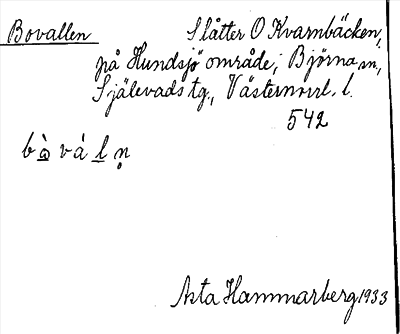 Bovallen Slåtter O Kvarnbäcken,
på Hundsjö område; Björna sn.,
Själevads tg., Västernorrl. l.
542
bò̲vál̲n̥
Asta Hammarberg 1933